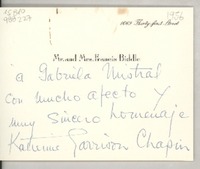 1956
1669 Thirty-first Street
Mr. and Mrs. Francis Biddle
a Gabriela Mistral
con mucho afecto y
muy sincero homenaje
Katherine Garrison Chapin